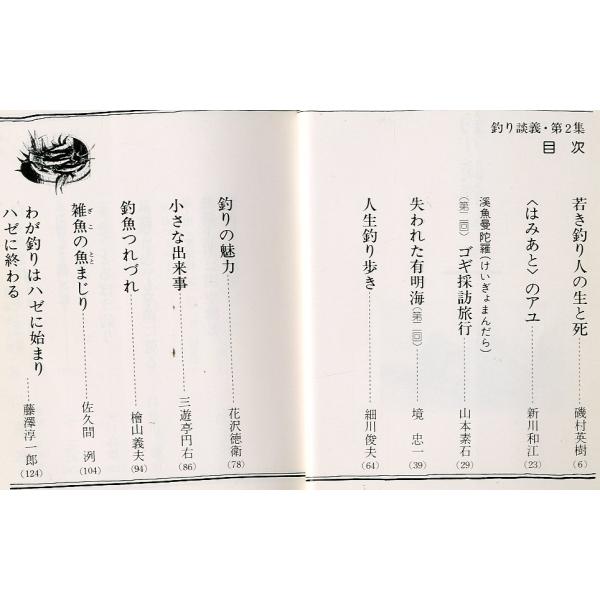 釣り談義・第2集
目次
若き釣り人の生と死 磯村英樹 (6)
〈はみあと〉のアユ 新川和江 (23)
渓魚曼陀羅(けいぎょまんだら)
(第二回) ゴギ採訪旅行 山本素石 (29)
失われた有明海(第二回) 境忠一 (39)
人生釣り歩き 細川俊夫 (64)
釣りの魅力 花沢徳衛 (78)
小さな出来事 三遊亭円右 (86)
釣魚つれづれ 檜山義夫 (94)
雑魚の魚まじり 佐久間洌 (104)
わが釣りはハゼに始まり
ハゼに終わる 藤澤淳一郎 (124)